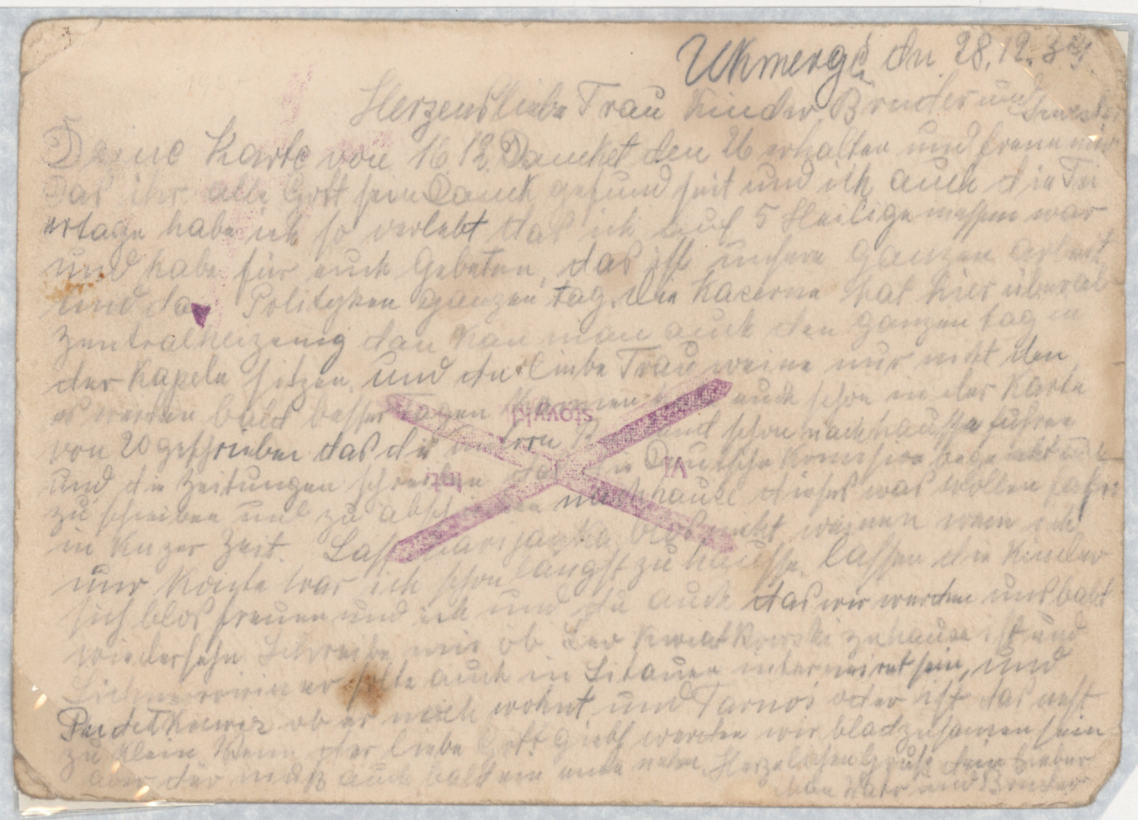 Ukmergė dn 28.12.39
Herzensliebe Frau Kinder Bruder und
Deine Karte von 16 12 Dancket den 26 erhalten und freue mich
Das ihr alle Gott sein Danck gesund seit und ich auch die Fei
ertage habe ich so verlebt das ich auf 5 Heiligemessen war
und habe für euch Gebeten, das ist unsere ganzen arbeit
und da Polityken ganzen tag. die Kacerne hat hier überal
Zentralheizung dan kan man auch den ganzen tag in
der Kapele sitzen und du liebe Frau weine nur nicht den
es werden bald besser tagen kommen auch schon in der Karte
von 20 geschrieben das die von 12 schon nachhausse fahren
und die Zeitungen schreiben Deutsche Komission
zu schreiben und zu nachhause dieses was wollen fahren
in kuzer Zeit Lass blos nicht weinen wenn ich
nur konte war ich schon langst zu hausse, lassen die Kinder
sich blos freuen und ich und du auch das wir werden uns bald
wiedersehn Schreibe mir ob Leo Kwiatkowski zuhause ist und
er solte auch in Litauen sein, und
ob er noch wohnt, und Tarnos oder ist das nest
zu klein Wenn der liebe Gott giebt werden wir bald zusamen sein
aber der muß auch bald ein ende nehm. Herzelichen Gruß dein lieber
Man Vater und Bruder